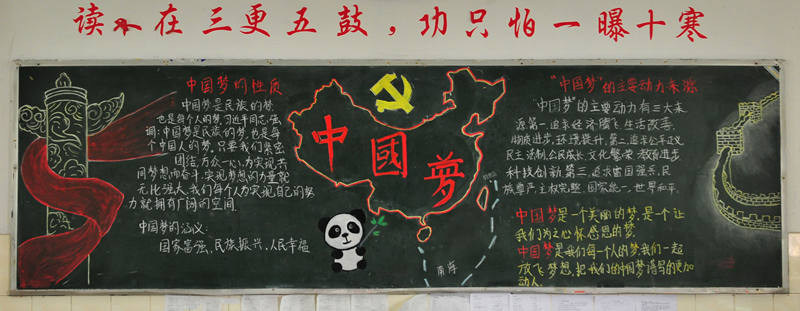 读书在三更五鼓，功只怕一曝十寒
中国梦的性质
中国梦是民族的梦,
也是每个人的梦,习近平同志强
调:中国梦是民族的梦,也是每
个中国人的梦,只要我们紧密
团结,万众一心,为实现共
同梦想而奋斗,实现梦想的力量就
无比强大,我们每个人为实现自己的努
力就拥有广阔的空间.
中国梦的涵义:
国家富强、民族振兴、人民幸福
中國夢
南海
"中国梦"的主要动力来源
"中国梦"的主要动力有三大来
源.第一.追求经济腾飞,生活改善,
物质进步,环境提升,第二.追求公平正义,
民主法制,公民成长,文化繁荣,教育进步
科技创新.第三.追求富国强兵,民
族尊严,主权完整,国家统一,世界和平.
中国梦是一个美丽的梦,是一个让
我们为之心怀感恩的梦
中国梦是我们每一个人的梦,我们一起
放飞梦想,把我们的中国梦谱写的更加
动人.